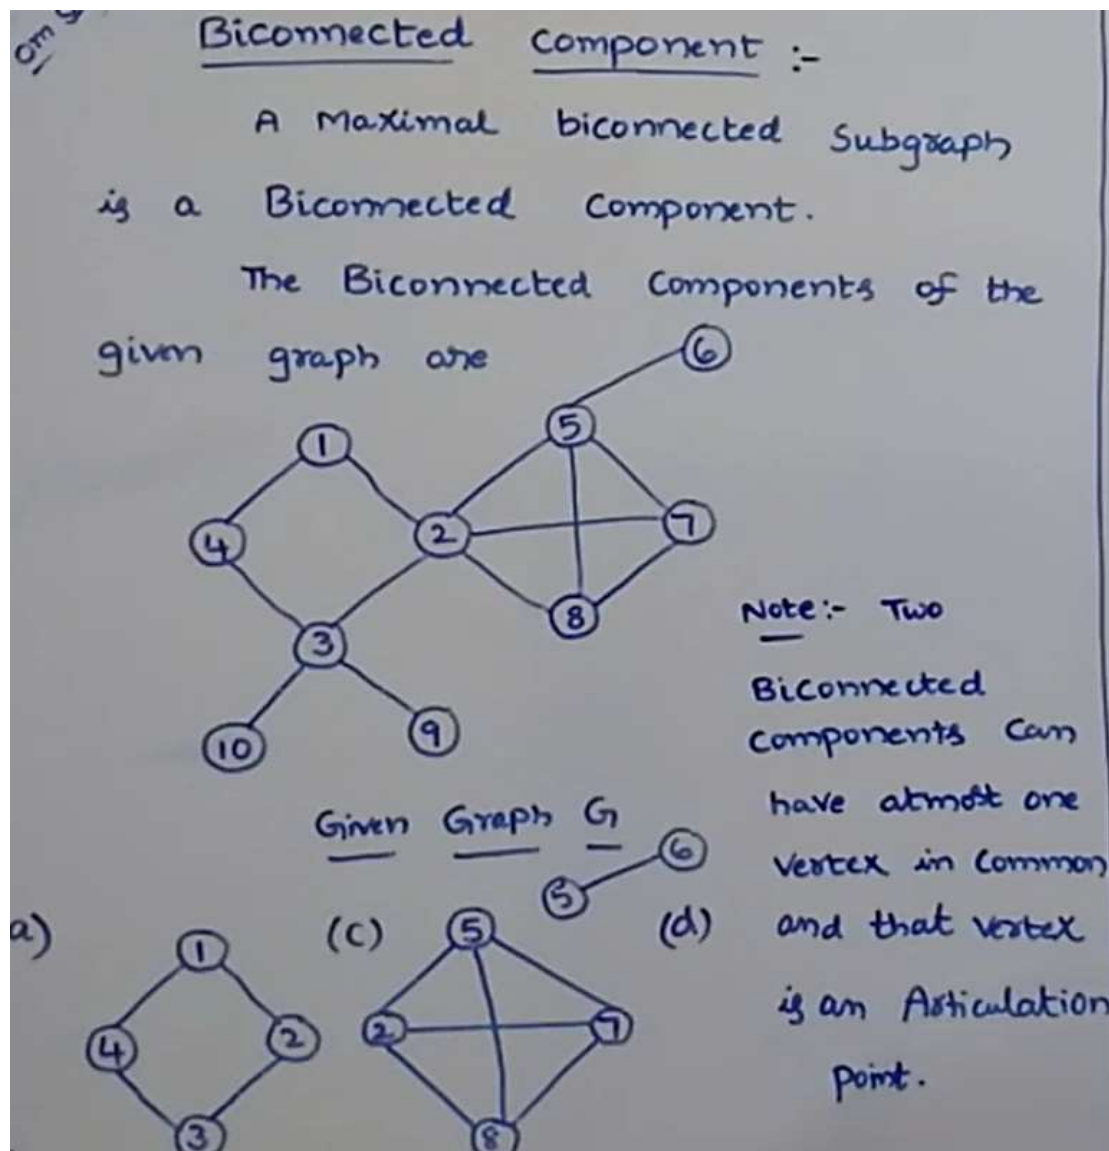 Biconnected Component :-
A Maximal biconnected Subgraph
is a Biconnected Component.
The Biconnected Components of the
given graph are
6
5
1
4
2
7
8
3
10
9
Note:- Two
Biconnected
Components Can
have atmost one
Vertex in Common
and that Vertex
is an Articulation
point.
Given Graph G
5 6
a) (c) (d)
1
4
2
3
5
2
7
8